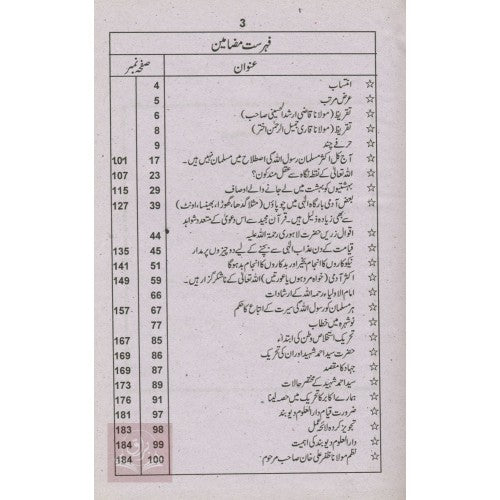 3
فہرست مضامین
عنوان صفحہ نمبر
☆ انتساب 4
☆ عرض مرتب 5
☆ تقریظ (مولانا قاضی ارشد الحسینی صاحب) 6
☆ تقریظ (مولانا قاری جمیل الرحمٰن اختر) 8
☆ حرفے چند 9
☆ آج کل اکثر مسلمان رسول اللہ کی اصطلاح میں مسلمان نہیں ہیں۔ 17 101
☆ اللہ تعالیٰ کے نقطہ نگاہ سے عقل مند کون؟ 23 107
☆ بہشتیوں کو بہشت میں لے جانے والے اوصاف 29 115
☆ بعض آدمی بارگاہ الٰہی میں چوپاؤں (مثلاً گدھا، گھوڑا، بھینسا، اونٹ) 39 127
سے بھی زیادہ ذلیل ہیں۔ قرآن مجید سے اس دعویٰ کے متعدد شواہد
☆ اقوال زریں حضرت لاہوری رحمۃ اللہ علیہ 44
☆ قیامت کے دن عذاب الٰہی سے بچنے کے لیے دو چیزوں پر مدار 45 135
☆ نیکوکاروں کا انجام بخیر اور بدکاروں کا انجام بد ہوگا 51 141
☆ اکثر آدمی (خواہ مرد ہوں یا عورتیں) اللہ تعالیٰ کے ناشکر گزار ہیں۔ 59 149
☆ امام الاولیاء رحمہ اللہ کے ارشادات 66
☆ ہر مسلمان کو رسول اللہ کی سیرت کے اتباع کا حکم 67 157
☆ نوشہرہ میں خطاب 77
☆ تحریک استخلاص وطن کی ابتداء 85 167
☆ حضرت سید احمد شہید اور ان کی تحریک 86 169
☆ جہاد کا مقصد 87 169
☆ سید احمد شہید کے مختصر حالات 89 173
☆ ہمارے اکابر کا تحریک میں حصہ لینا 91 176
☆ ضرورت قیام دارالعلوم دیوبند 97 181
☆ تجویز کردہ لائحہ عمل 98 183
☆ دارالعلوم دیوبند کی اہمیت 99 184
☆ نظم مولانا ظفر علی خان صاحب مرحوم 100 184